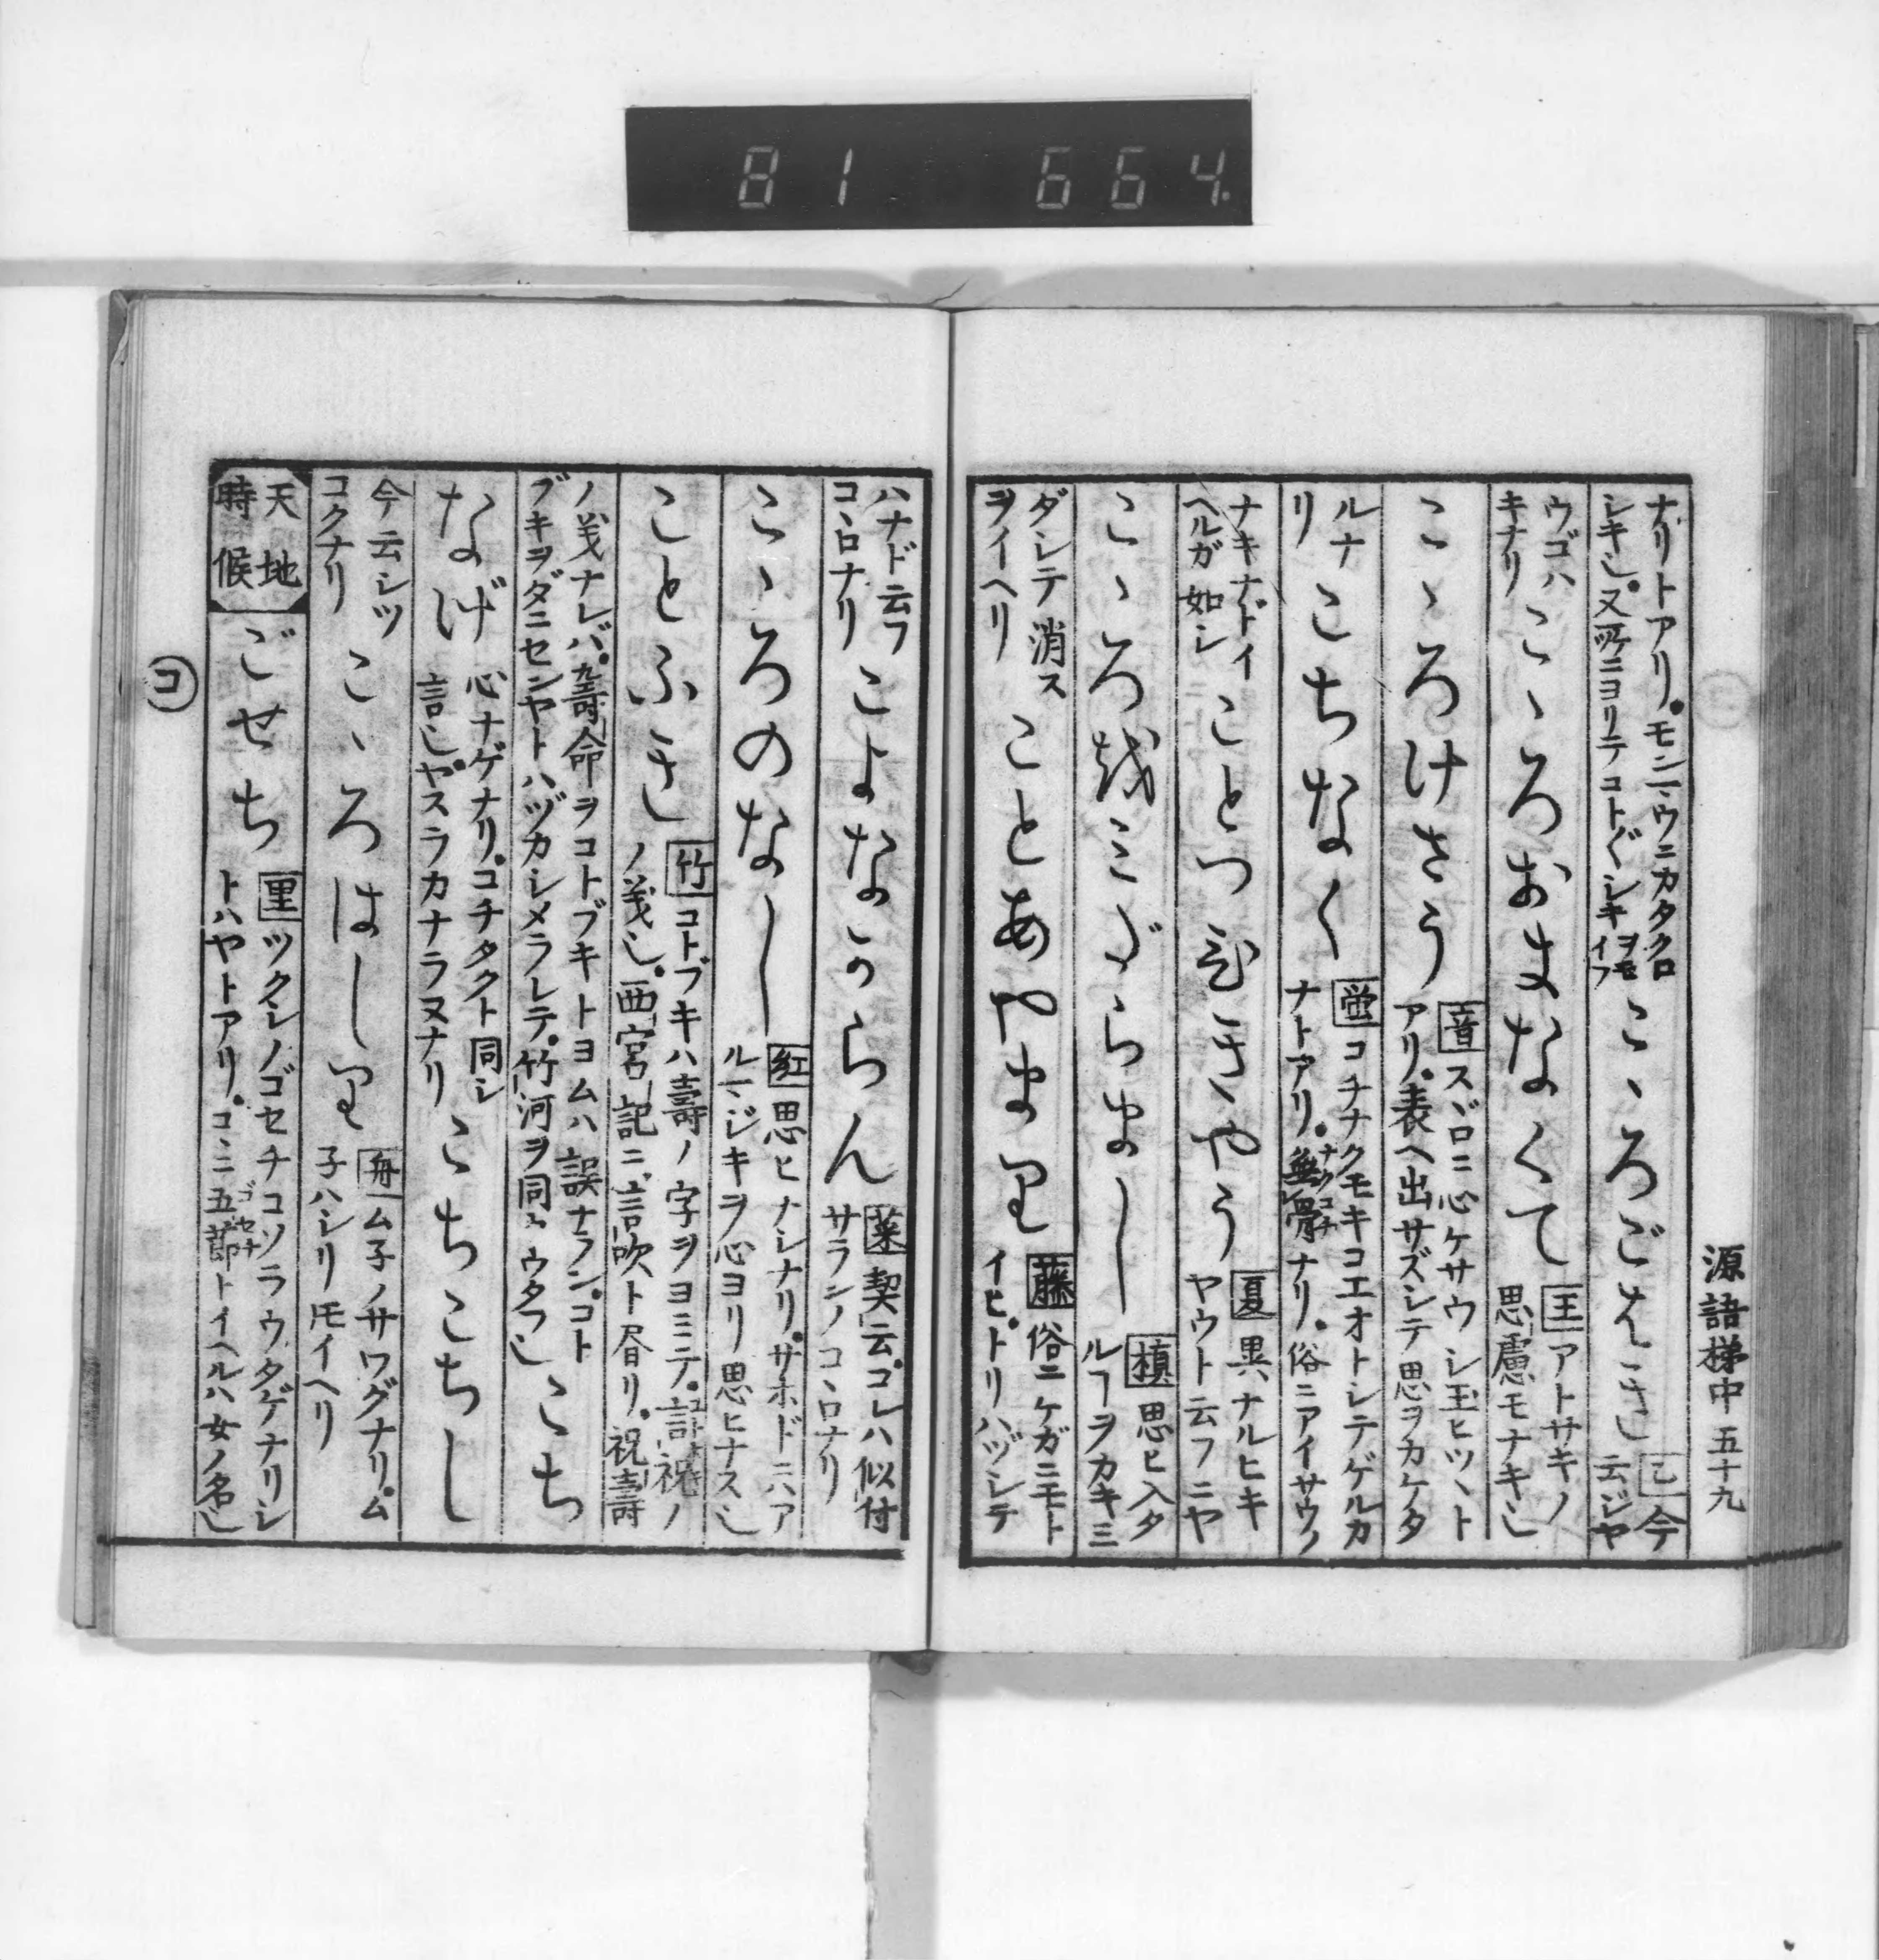 81 664.
源語梯中 五十九
ナリトアリ。モンマウニカタクロ
シキ乄。又所ニヨリテコト〴〵シキヲモイフ
こゝろごはき
已 今
云ジヤ
ウゴハ
キナリ
こゝろおまなくて
玉 アトサキノ
思慮モナキ乄
こゝろけさう
音 スヾロニ心ケサウシ玉ヒツヽト
アリ。表ヘ出サズシテ思ヲカケタ
ルナ
リ
こちなく
螢 コチナクモキコエオトシテゲルカ
ナトアリ。無骨ナリ。俗ニアイサウノ
ナキナドイ
ヘルガ如シ
ことつひきやう
夏 異ナルヒキ
ヤウト云フニヤ
こゝろ越みづらまし
槙 思ヒ入タ
ルヿヲカキミ
ダレテ消ス
ヲイヘリ
ことあやまり
藤 俗ニケガニモト
イヒ。トリハヅシテ
ハナド云フ
コヽロナリ
こよなからん
菜 契云。コレハ似付
サラシノコヽロナリ
こゝろのなし
紅 思ヒナシナリ。サホドニハア
ルマジキヲ心ヨリ思ヒナス乄
ことふきし
竹 コトブキハ壽ノ字ヲヨミテ。言祝ノ
ノ義乄。西宮記ニ言吹ト書リ。祝壽
ノ義ナレバ。壽命ヲコトブキトヨムハ誤ナラン。コト
ブキヲダニセンヤトハヅカシメラレテ。竹河ヲ同クウタフ乄
こち
なげ
心ナゲナリ。コチタクト同シ
言乄ヤスラカナラヌナリ
こちこちし
今云シツ
コクナリ
こゝろはしり
舟 ム子ノサワグナリ。ム
子ハシリ𪜈イヘリ
天地
時候
ごせち
里 ツクシノゴセチコソラウタゲナリシ
トハヤトアリ。コヽニ五節トイヘルハ女ノ名乄
コ